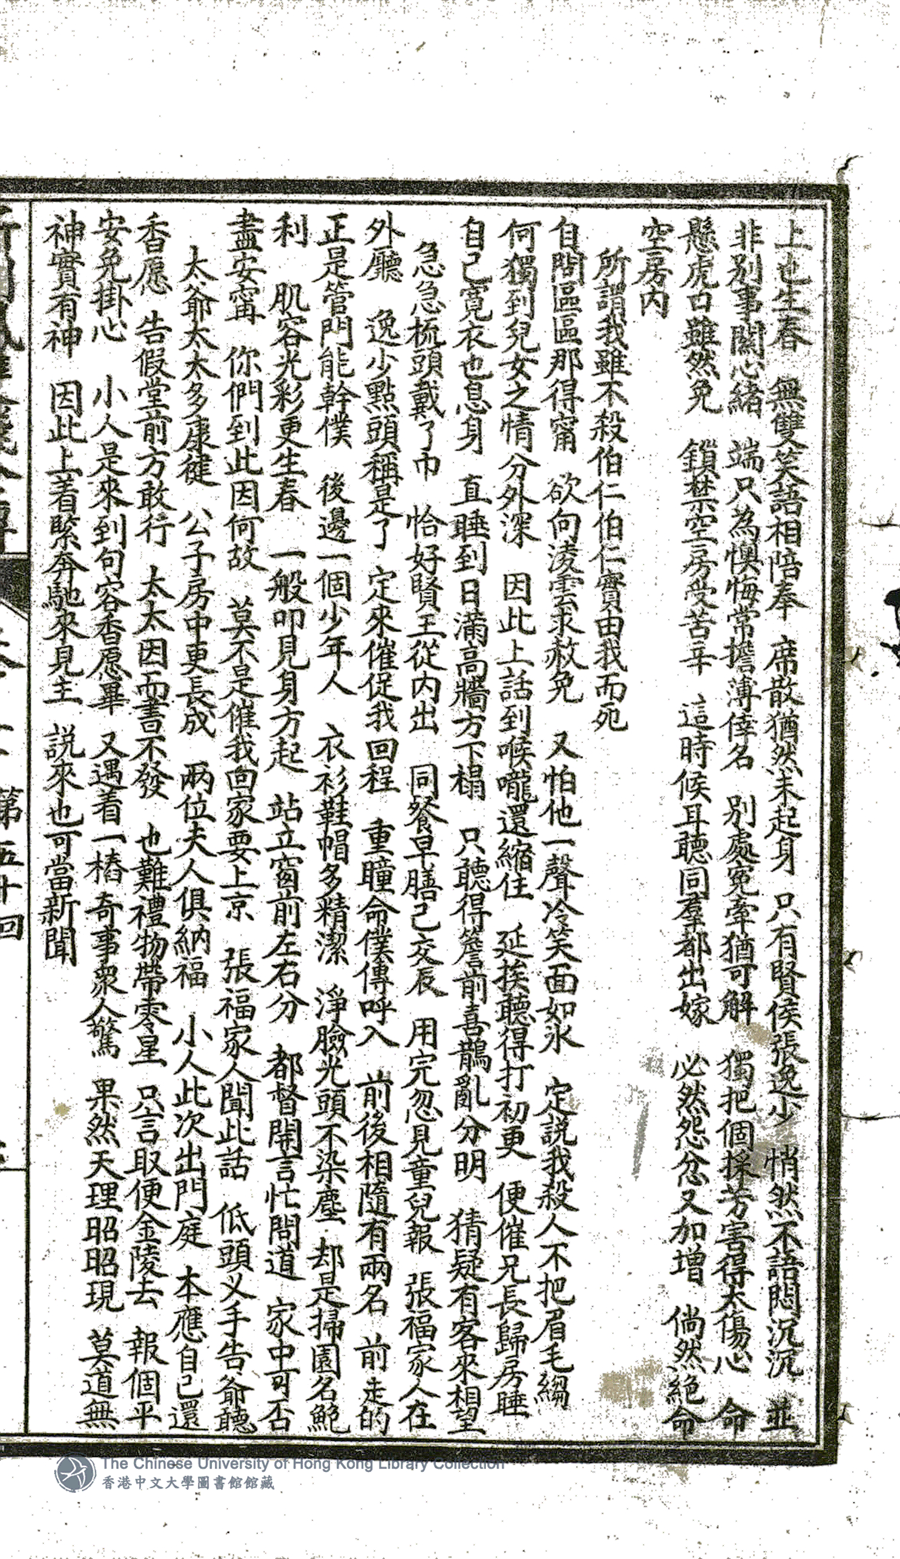 上也生春　無雙笑語相陪奉　席散猶然未起身　只有賢侯張逸少　悄然不語悶沉沉　並
非別事關心緒　端只為懊悔常擔薄倖名　別處冤牽猶可解　獨把個採芳害得太傷心　命
懸虎口雖然免　鎖禁空房受苦辛　這時候耳聽同羣都出嫁　必然怨忿又加增　倘然絕命
空房內
所謂我雖不殺伯仁伯仁實由我而死
自問區區那得甯　欲向淩雲求赦免　又怕他一聲冷笑面如冰　定說我殺人不把眉毛縐
何獨到兒女之情分外深　因此上話到喉嚨還縮住　延挨聽得打初更　便催兄長歸房睡
自己寬衣也息身　直睡到日滿高牆方下榻　只聽得簷前喜鵲亂分明　猜疑有客來相望
急急梳頭戴了巾　恰好賢王從內出　同餐早膳已交辰　用完忽見童兒報　張福家人在
外廳　逸少點頭稱是了　定來催促我回程　重瞳命僕傳呼入　前後相隨有兩名　前走的
正是管門能幹僕　後邊一個少年人　衣衫鞋帽多精潔　淨臉光頭不染塵　却是掃園名鮑
利　肌容光彩更生春　一般叩見身方起　站立窗前左右分　都督開言忙問道　家中可否
盡安甯　你們到此因何故　莫不是催我回家要上京　張福家人聞此話　低頭义手告爺聽
太爺太太多康健　公子房中更長成　兩位夫人俱納福　小人此次出門庭　本應自己還
香愿　告假堂前方敢行　太太因而書不發　也難禮物帶零星　只言取便金陵去　報個平
安免掛心　小人是來到句容香愿畢　又遇着一樁奇事衆人驚　果然天理昭昭現　莫道無
神實有神　因此上着緊奔馳來見主　說來也可當新聞
第五十回
The Chinese University of Hong Kong Library Collection
香港中文大學圖書館館藏